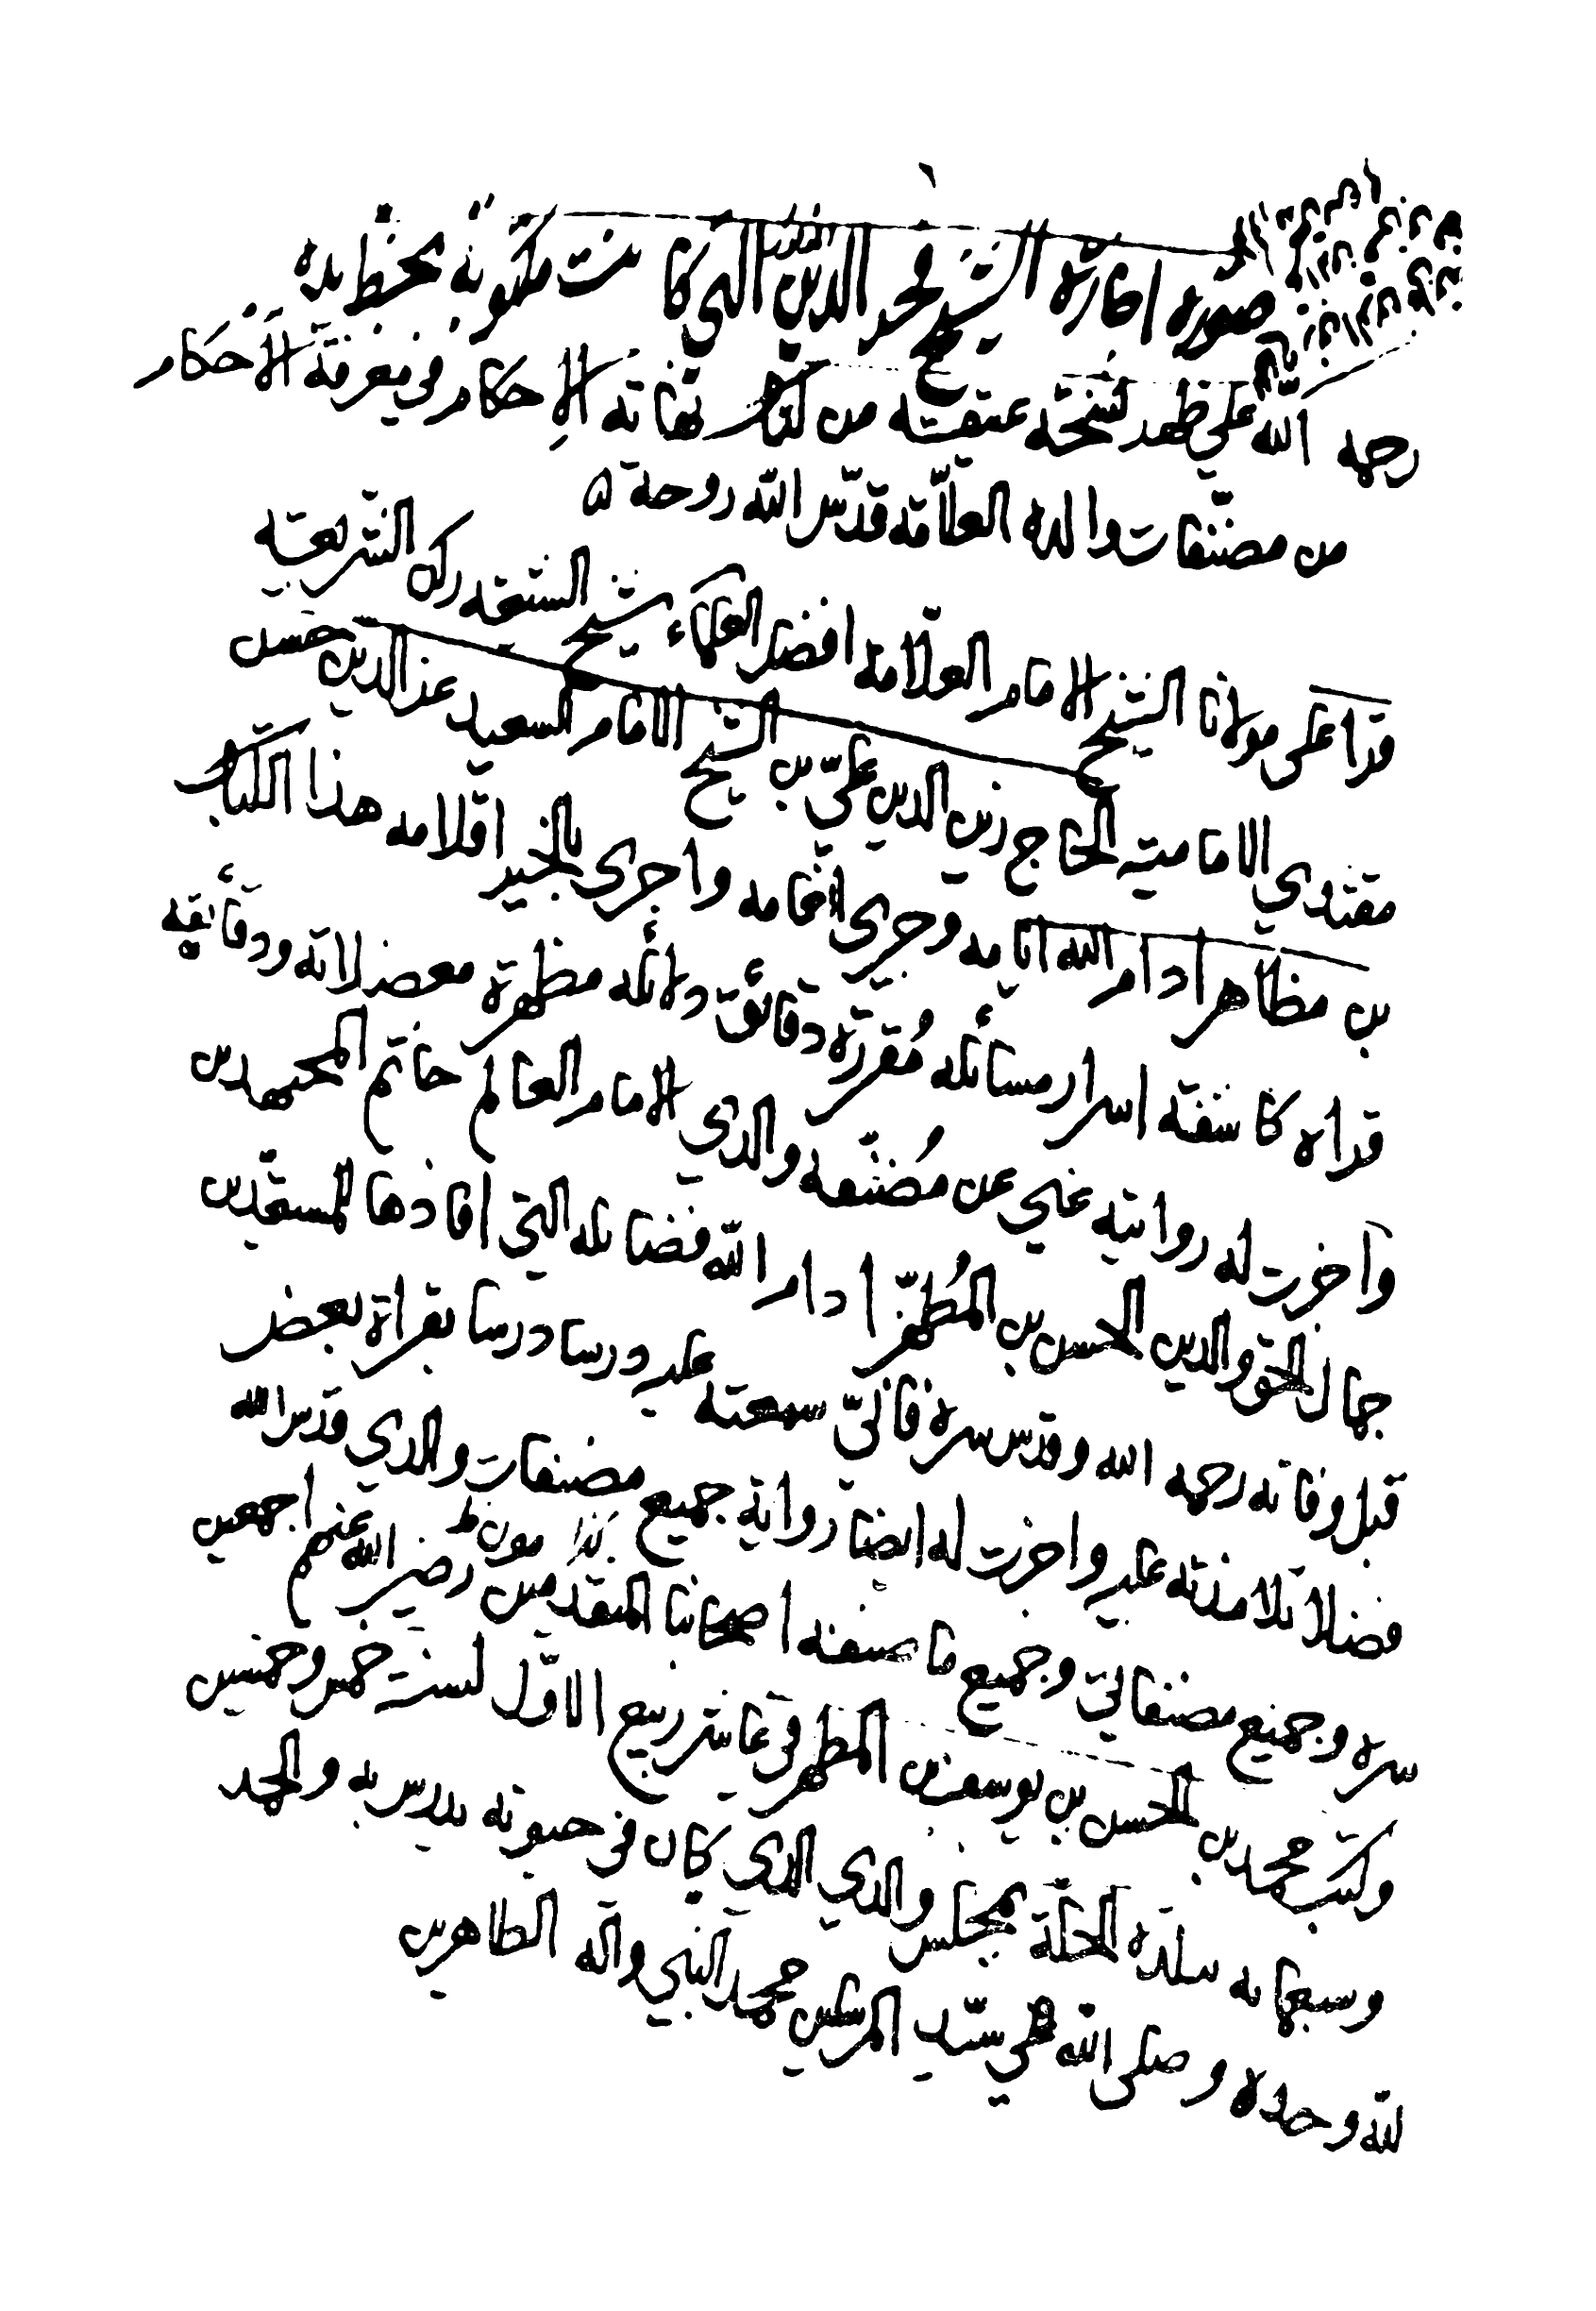 صورة اجازة الشيخ فخر الدين التي كانت مكتوبة بخط يده
رحمه الله على ظهر نسخة عتيقة من كتاب نهاية الإحكام في معرفة الأحكام
من مصنّفات والده العلّامة قدّس الله روحه
قرا على مولانا الشيخ الامام العلّامة افضل العلماء شيخ الشيعة ركن الشريعة
مقتدي الامامية الحاج زين الدين عليّ بن الشيخ الامام السعيد عز الدين حسن
بن مظاهر ادام الله ايامه وجرى واجرى بالخير اقلامه هذا الكتاب
قراة كاشفة اسرار مسائله مُقررة دقائق دلائله مظهرة معضلاته ودقائقه
وأجزت له روايته عني عن مُصنّفه والدي الامام العالم خاتم المجتهدين
جمال الحق والدين الحسن بن المُطهّر ادام الله فضائله التي افادها للمستعدّين
قبل وفاته رحمه الله وقدس سره فانّي سمعته عليه درسا درسا بقراة بعض
فضلا تلامذته عليه واجزت له ايضا رواية جميع مصنفات والدي قدس الله
سره وجميع مصنفاتي وجميع ما صنفه اصحابنا المتقدمين رضي الله عنهم اجمعين
وكتب محمد بن الحسن بن يوسف بن المطهر في عاشر ربيع الاوّل لسنة خمس وخمسين
وسبعمايه ببلدة الحلّة بمجلس والدي الذي كان في حيوته يدرس به والحمد
لله وحده وصلى الله على سيّد المرسلين محمد النبي وآله الطاهرين